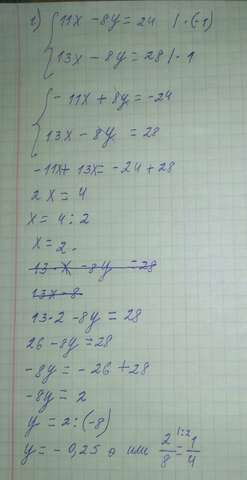 1) { 11x - 8y = 24 | · (-1)
13x - 8y = 28 | · 1
{ - 11x + 8y = -24
13x - 8y = 28
-11x + 13x = -24 + 28
2x = 4
x = 4 : 2
x = 2.
13 · x - 8y = 28
13x - 8
13 · 2 - 8y = 28
26 - 8y = 28
-8y = -26 + 28
-8y = 2
y = 2 : (-8)
y = - 0,25 или 2/8 = 1/4